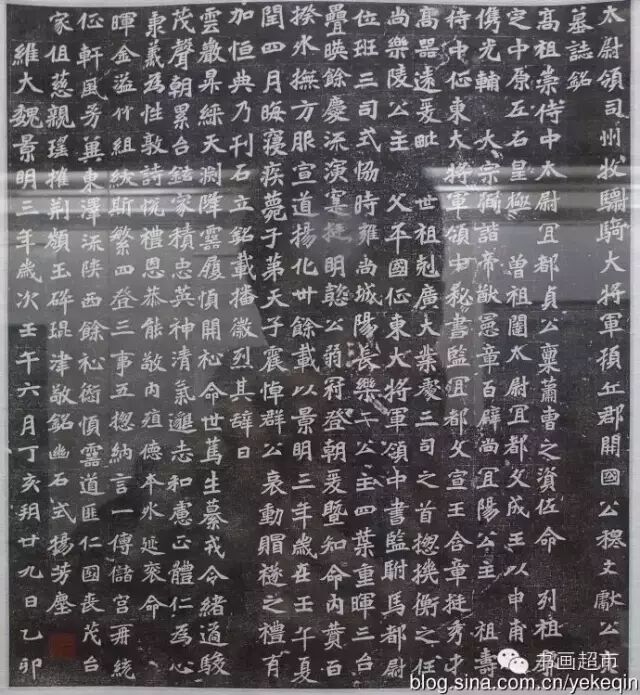 太尉領司州牧驃騎大將軍頓丘郡開國公穆文獻公亮
墓誌銘
高祖崇侍中太尉宜都貞公稟蕭曹之資佐命 列祖
定中原左右皇極 曾祖闥太尉宜都文成王以申甫
儁光輔 太宗彌諧帝猷憲章百辟尚宜陽公主 祖壽
侍中征東大將軍領中秘書監宜都文宣王含章挺秀才
高器遠爰毗 世祖剋廣大業處三司之首摠機衡之任
尚樂陵公主 父平國征東大將軍領中書監駙馬都尉
位班三司式協時雍尚城陽長樂二公主四葉重暉三台
疊暎餘慶流演寔挺明懿公弱冠登朝爰暨知命內贊百
揆外撫方服宣道揚化卅餘載以景明三年歲在壬午夏
閏四月晦寢疾薨子弟天子震悼群公哀動賵襚之禮有
加恒典乃刊石立銘載播徽烈其辭曰
雲皦昇綵天淵降靈履順開祉命世篤生纂戎令緒邁駿
茂聲朝累台鉉家積忠英神清氣邈志和慮正體仁為心
秉義為性敦詩悅禮恩恭能敬內殖德本外延袞命
暉金溢竹組紱斯繁四登三事五摠納言一傅儲宮再統
征軒風芳冀東澤流陝西餘祉銜慎靈道匪仁國喪茂台
家徂慈親瑤摧荊嶺玉碎琨津敬銘幽石式揚芳塵
維大魏景明三年歲次壬午六月丁亥朔廿九日乙卯
书画超市
blog.sina.com.cn/yekeqin